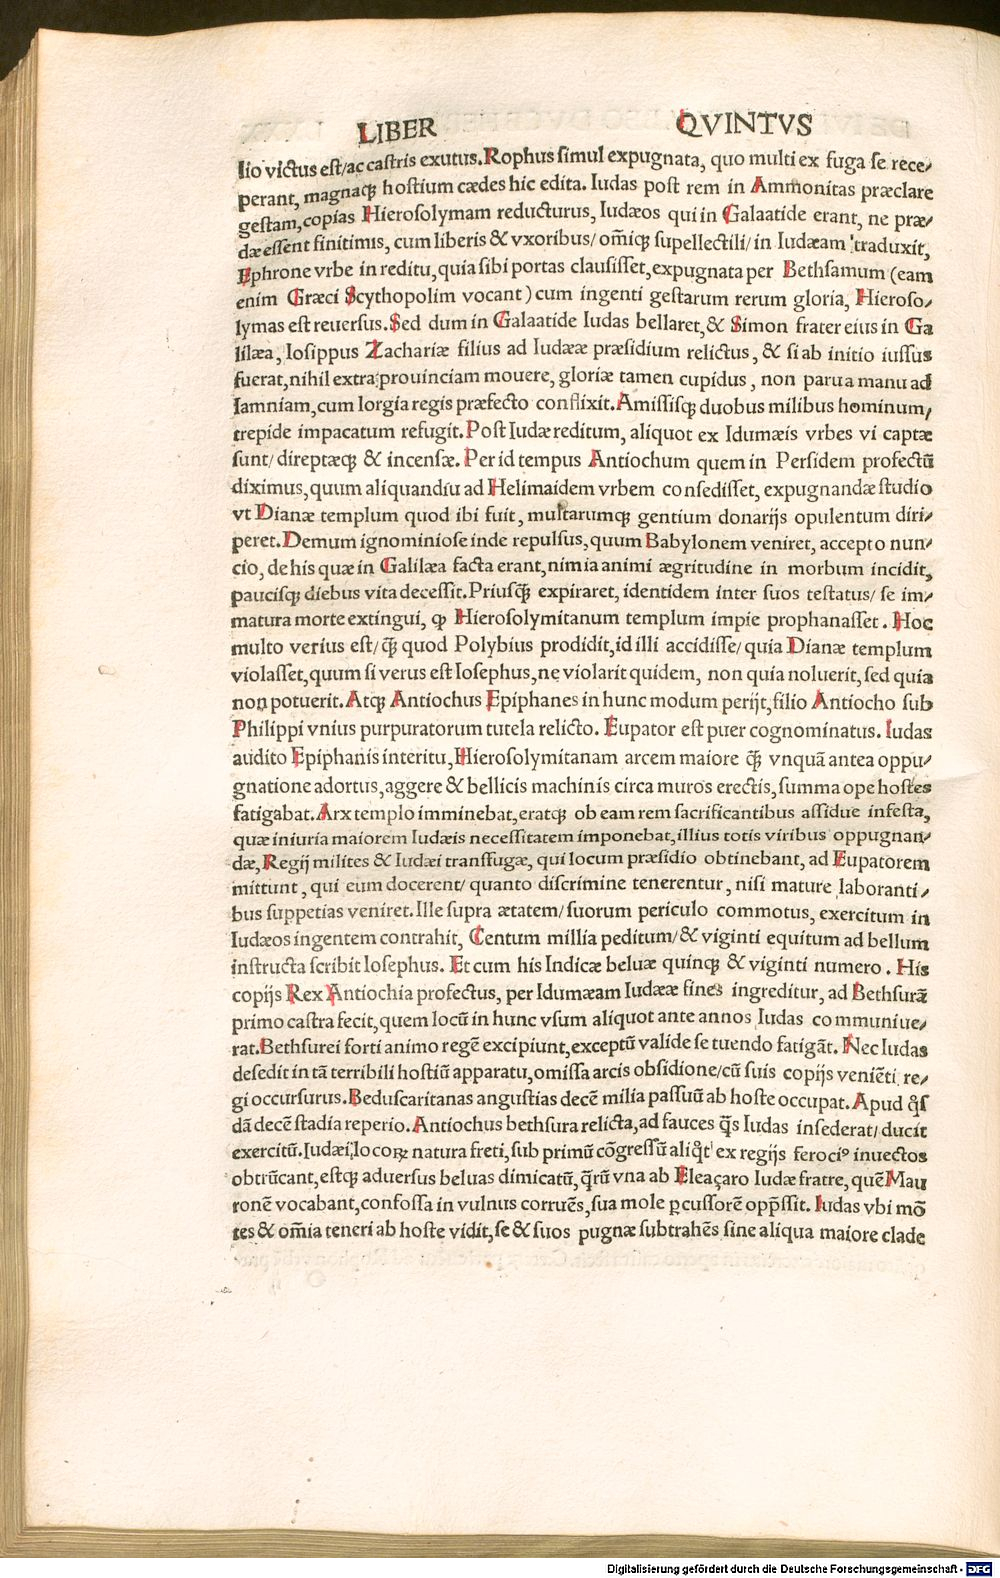 LIBER QVINTVS
lio victus est/ac castris exutus. Rophus simul expugnata, quo multi ex fuga se rece/
perant, magnaqꝫ hostium cædes hic edita. Iudas post rem in Ammonitas præclare
gestam, copias Hierosolymam reducturus, Iudæos qui in Galaatide erant, ne præ/
dæ essent finitimis, cum liberis & vxoribus/ om̃iqꝫ supellectili/ in Iudæam traduxit,
Ephrone vrbe in reditu, quia sibi portas clausisset, expugnata per Bethsamum (eam
enim Græci Scythopolim vocant) cum ingenti gestarum rerum gloria, Hieroso/
lymas est reuersus. Sed dum in Galaatide Iudas bellaret, & Simon frater eius in Ga
lilæa, Iosippus Zachariæ filius ad Iudææ præsidium relictus, & si ab initio iussus
fuerat, nihil extra prouinciam mouere, gloriæ tamen cupidus, non parua manu ad
Iamniam, cum Iorgia regis præfecto conflixit. Amissisqꝫ duobus milibus hominum,
trepide impacatum refugit. Post Iudæ reditum, aliquot ex Idumæis vrbes vi captæ
sunt/ direptæqꝫ & incensæ. Per id tempus Antiochum quem in Persidem profectũ
diximus, quum aliquandiu ad Helimaidem vrbem consedisset, expugnandæ studio
vt Dianæ templum quod ibi fuit, multarumqꝫ gentium donarijs opulentum diri/
peret. Demum ignominiose inde repulsus, quum Babylonem veniret, accepto nun/
cio, de his quæ in Galilæa facta erant, nimia animi ægritudine in morbum incidit,
paucisqꝫ diebus vita decessit. Priusq̃ expiraret, identidem inter suos testatus/ se im/
matura morte extingui, ꝙ Hierosolymitanum templum impie prophanasset. Hoc
multo verius est/ q̃ quod Polybius prodidit, id illi accidisse/ quia Dianæ templum
violasset, quum si verus est Iosephus, ne violarit quidem, non quia noluerit, sed quia
non potuerit. Atqꝫ Antiochus Epiphanes in hunc modum perijt, filio Antiocho sub
Philippi vnius purpuratorum tutela relicto. Eupator est puer cognominatus. Iudas
audito Epiphanis interitu, Hierosolymitanam arcem maiore q̃ vnquã antea oppu/
gnatione adortus, aggere & bellicis machinis circa muros erectis, summa ope hostes
fatigabat. Arx templo imminebat, eratqꝫ ob eam rem sacrificantibus assidue infesta,
quæ iniuria maiorem Iudæis necessitatem imponebat, illius totis viribus oppugnan/
dæ, Regij milites & Iudæi transfugæ, qui locum præsidio obtinebant, ad Eupatorem
mittunt, qui eum docerent/ quanto discrimine tenerentur, nisi mature laboranti/
bus suppetias veniret. Ille supra ætatem/ suorum periculo commotus, exercitum in
Iudæos ingentem contrahit, Centum millia peditum/ & viginti equitum ad bellum
instructa scribit Iosephus. Et cum his Indicæ beluæ quinqꝫ & viginti numero. His
copijs Rex Antiochia profectus, per Idumæam Iudææ fines ingreditur, ad Bethsurã
primo castra fecit, quem locũ in hunc vsum aliquot ante annos Iudas communiue/
rat. Bethsurei forti animo regẽ excipiunt, exceptũ valide se tuendo fatigãt. Nec Iudas
desedit in tã terribili hostiũ apparatu, omissa arcis obsidione/ cũ suis copijs veniẽti re/
gi occursurus. Beduscaritanas angustias decẽ milia passuũ ab hoste occupat. Apud q̃s
dã decẽ stadia reperio. Antiochus bethsura relicta, ad fauces q̃s Iudas insederat/ ducit
exercitũ. Iudæi, locoꝝ natura freti, sub primũ cõgressũ aliq̃t ex regijs ferociꝰ inuectos
obtrũcant, estqꝫ aduersus beluas dimicatũ, q̃rũ vna ab Eleaçaro Iudæ fratre, quẽ Mau
ronẽ vocabant, confossa in vulnus corruẽs, sua mole ꝑcussorẽ opp̃ssit. Iudas vbi mõ
tes & om̃ia teneri ab hoste vidit, se & suos pugnæ subtrahẽs sine aliqua maiore clade
Digitalisierung gefördert durch die Deutsche Forschungsgemeinschaft - DFG